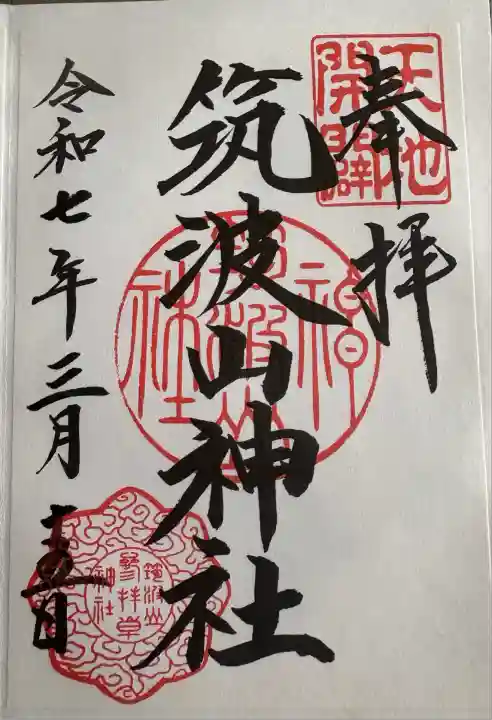 奉拝
天地
開闢
筑波山神社
筑波山
神社
令和七年三月
筑波山
参拝章
神社